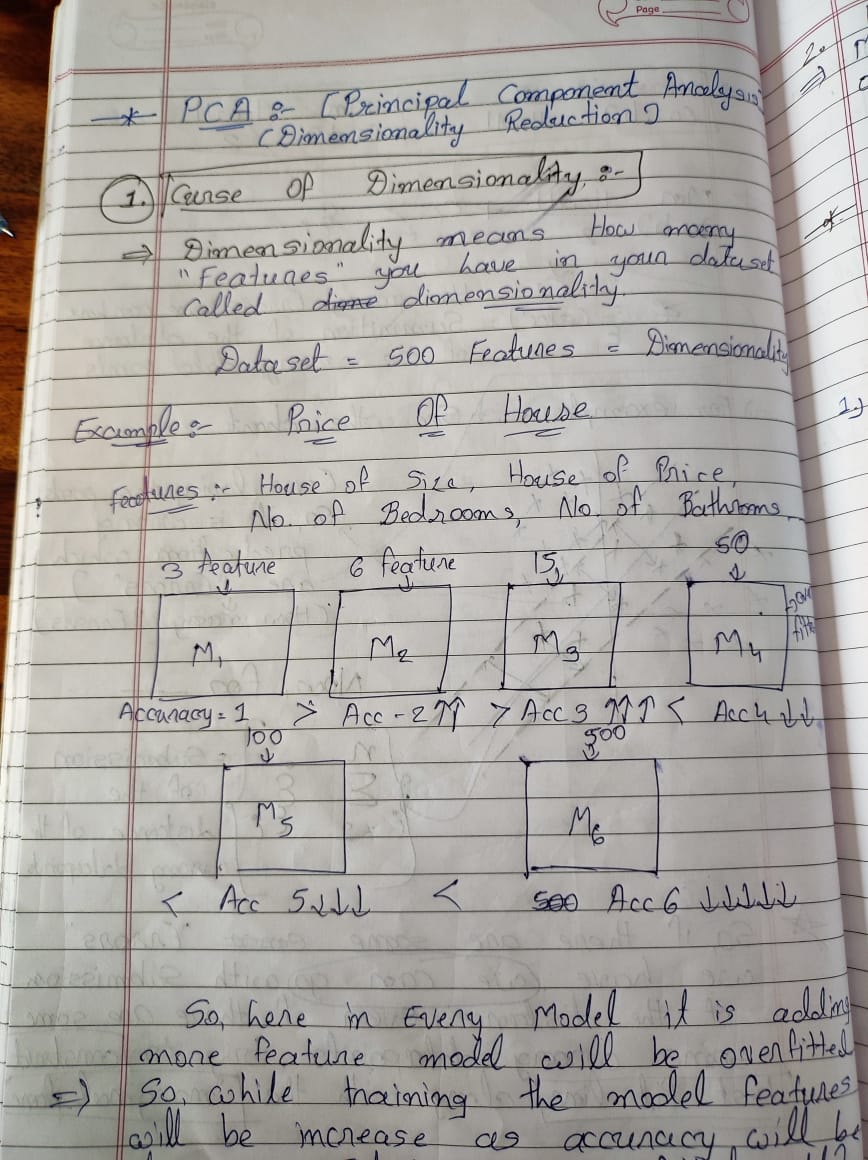 Page
* PCA :- [Principal Component Analysis
(Dimensionality Reduction)]
1. Curse Of Dimensionality :-
⇒ Dimensionality means How many
"Features" you have in your dataset
Called dimensionality.
Dataset = 500 Features = Dimensionality
Example :- Price Of House
Features :- House of Size, House of Price,
No. of Bedrooms, No. of Bathrooms
3 feature 6 feature 15 50
M1 M2 M3 M4
Accuracy = 1 > Acc - 2 ↑↑ > Acc 3 ↑↑↑ < Acc 4 ↓↓
100 500
M5 M6
< Acc 5 ↓↓↓ < Acc 6 ↓↓↓↓↓
So, here in Every Model it is adding
more feature model will be overfitted
⇒ So, while training the model features
will be increase as accuracy will be